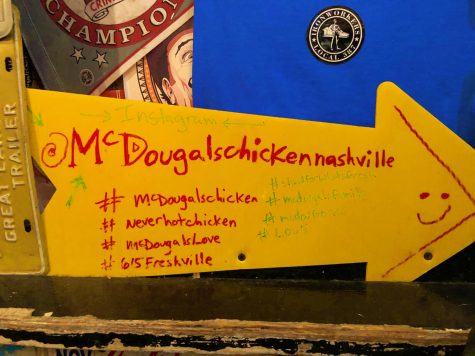 CHAMPION
IRONWORKERS
LOCAL 387
GREAT LAKES
TRAILER
Instagram
@McDougalschickennashville
# McDougalschicken
# Neverhotchicken
# McDougalsLove
# 615Freshville
# Love
NOV